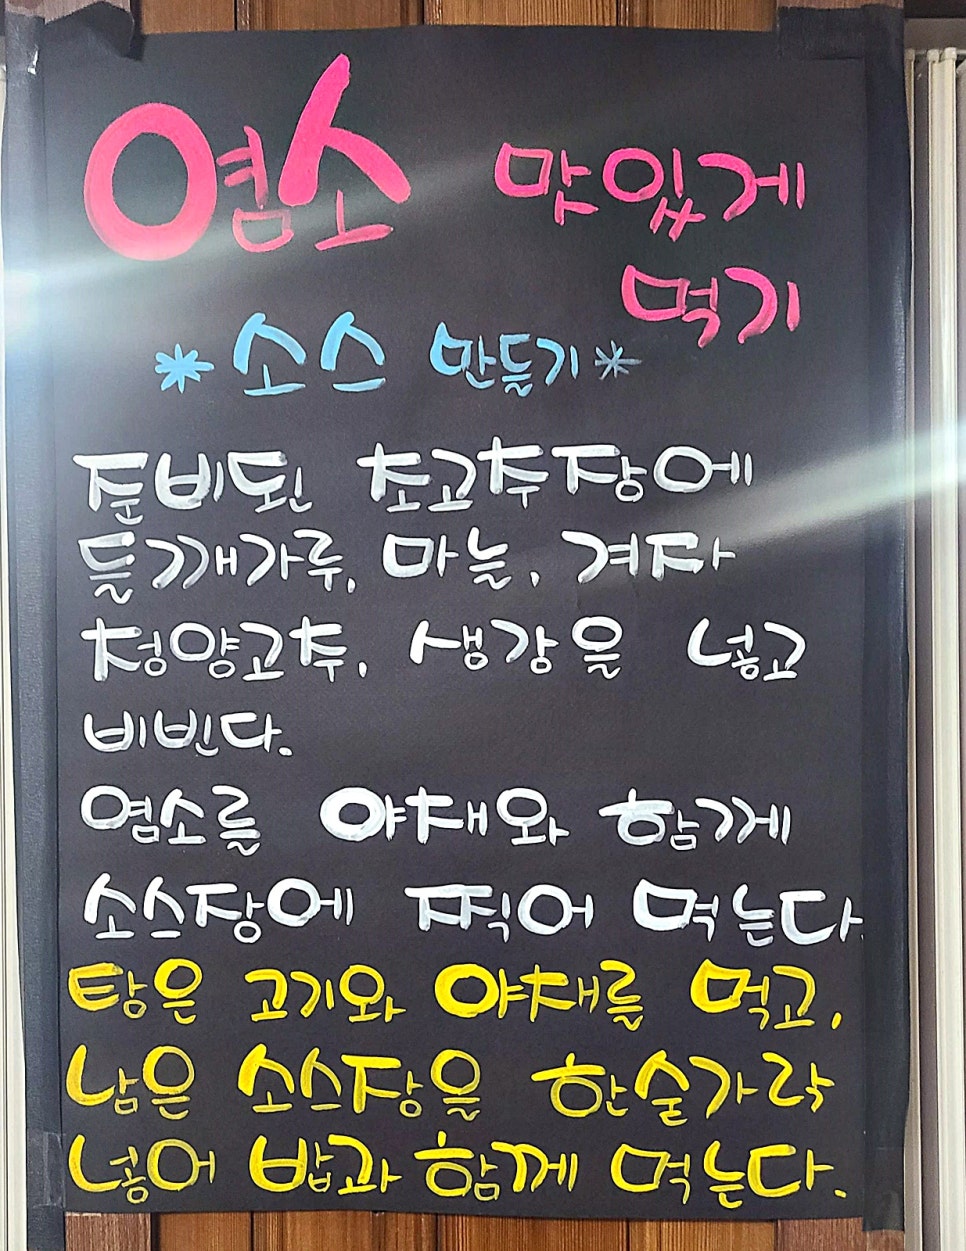 염소 맛있게
먹기
*소스 만들기*
준비된 초고추장에
들깨가루, 마늘, 겨자
청양고추, 생강을 넣고
비빈다.
염소를 야채와 함께
소스장에 찍어 먹는다.
탕은 고기와 야채를 먹고,
남은 소스장을 한술가락
넣어 밥과 함께 먹는다.